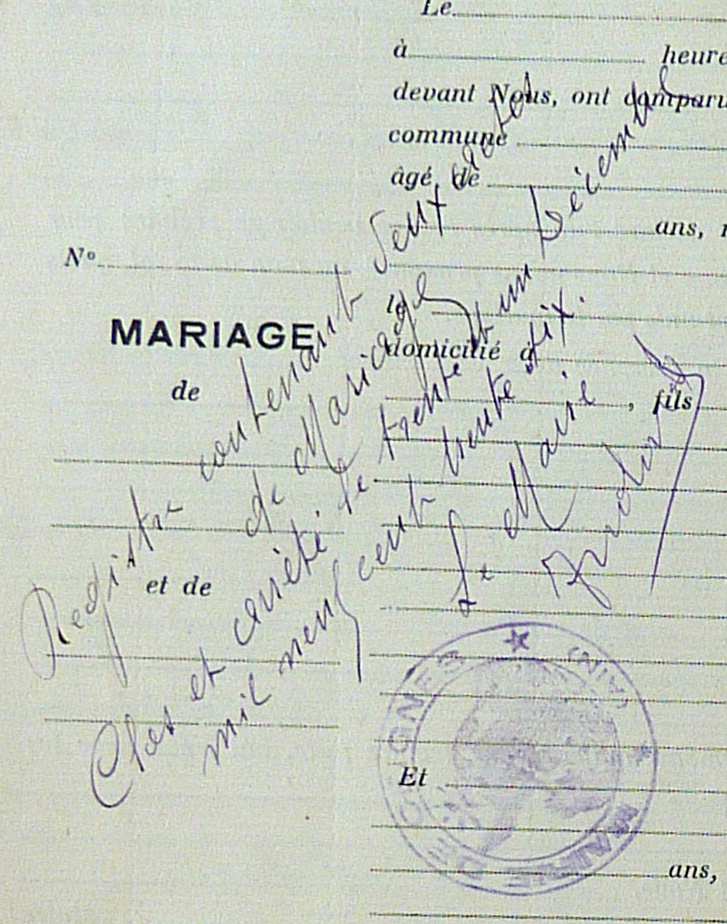 Le
à heure
devant Nous, ont comparu
commune
âgé de
ans,
N°
le
MARIAGE
domicilié à
de
, fils
et de
Et
ans,
Registre contenant deux actes
de Mariage
Clos et arrêté le trente et un Décembre
mil neuf cent trente six.
Le Maire
MAIRIE DE